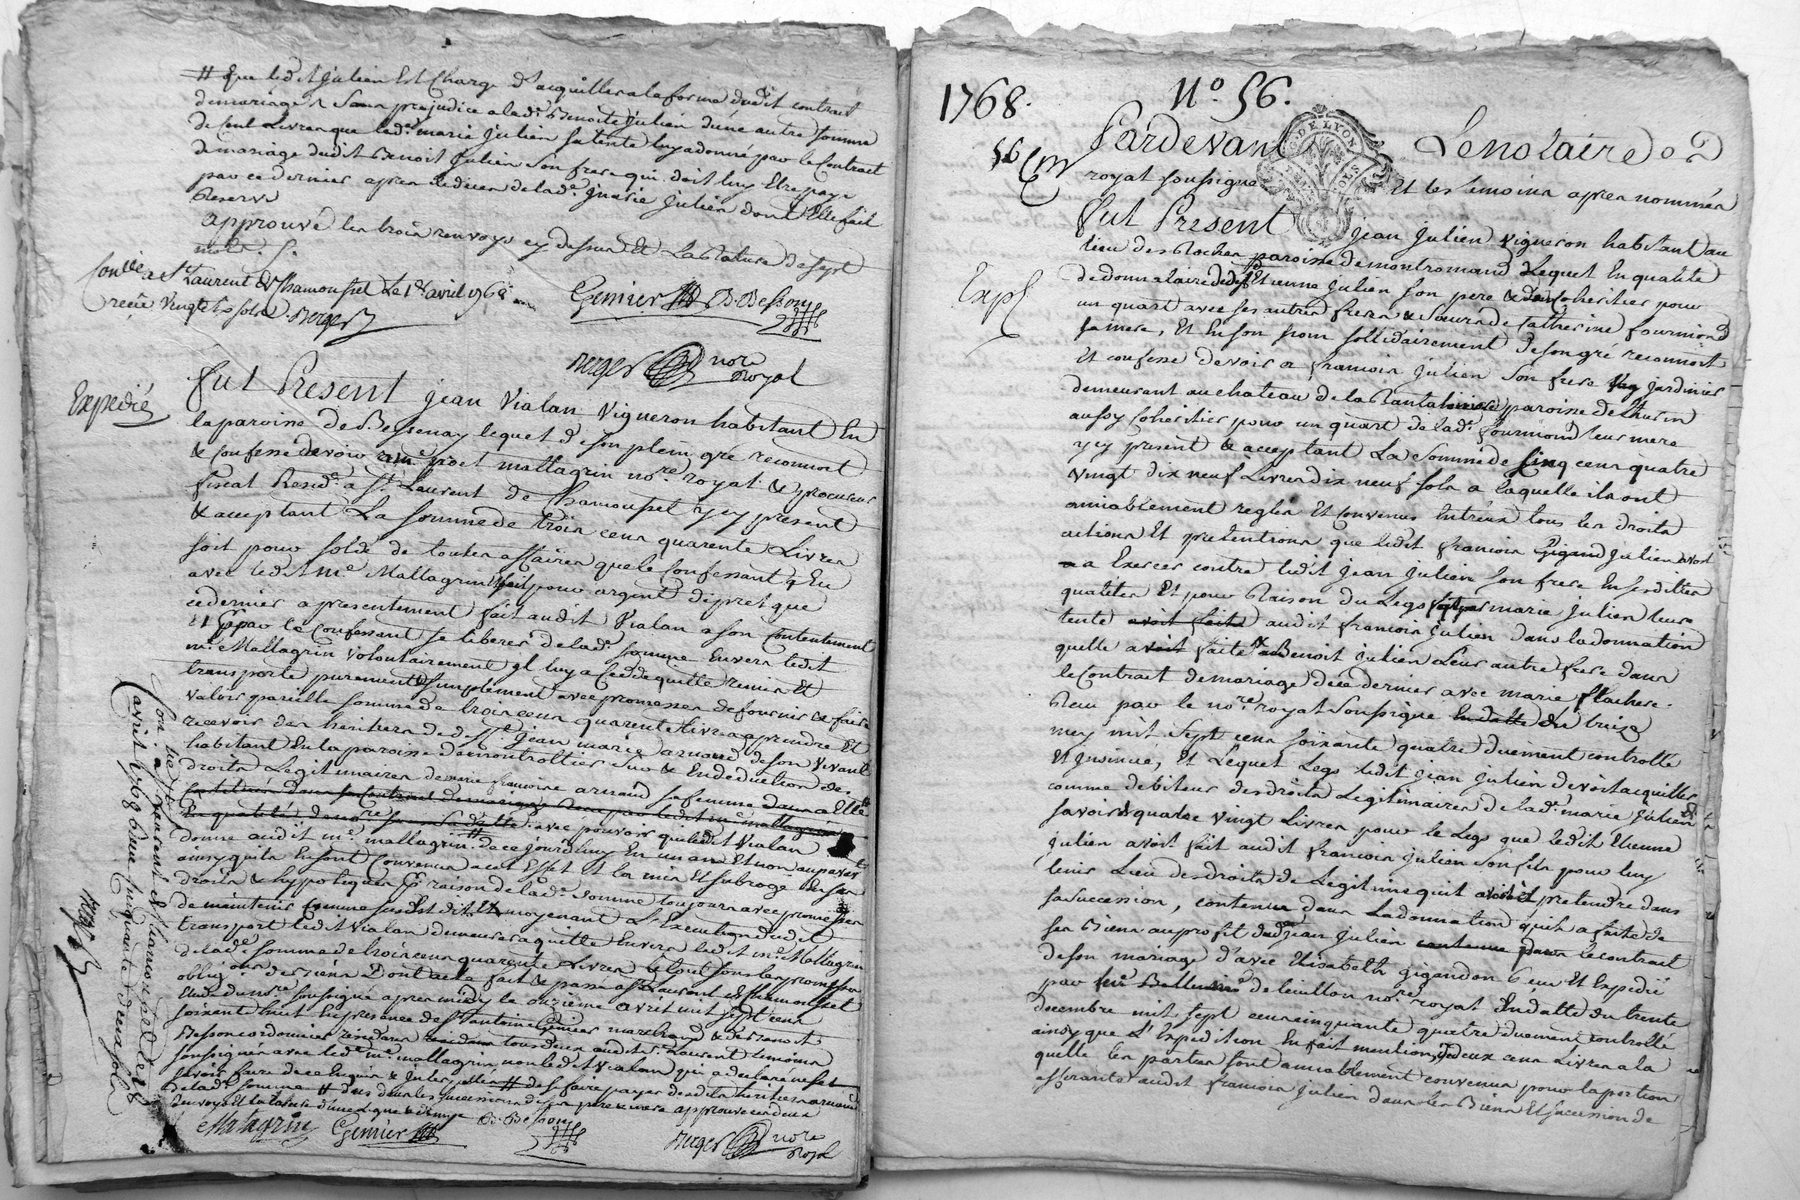 # que ledit Julien Est Chargé d'acquitter a la forme dudit contrat
de mariage & Sans prejudice a lad.e Benoite Julien d'une autre somme
de Cent Livres que lad.e marie Julien sa tente luy a donné par le Contrat
de mariage dudit Benoit Julien Son frere qui doit luy Etre payé
par ce dernier apres le déces de lad.e marie Julien dont Elle fait
Reserve
approuvé les trois renvoys cy dessus Et La Rature de sept
mots. /.
Conllé a St Laurent de Chamousset Le 1er avril 1768
reçu vingt six sols. Berger
Genier B. Besson
Berger nore Royal
Expedié
fut Present jean Vialan Vigneron habitant En
la paroisse de Bessenay lequel de son plein gré reconnoit
& confesse devoir a me mallagrin no.re royal & procureur
fiscal Resid.t a St Laurent de Chamousset y cy present
& acceptant La somme de trois cens quarente Livres
soit pour solde de toutes affaires que le Confessant a Eu
avec ledit m.e Mallagrin soit pour argent de pret que
ce dernier a presentement fait audit Vialan a son Contentement
Et pour le Confessant se liberer de lad.e somme Envers ledit
m.e Mallagrin Volontairement il luy a Cedé quitte remis Et
transporte purement & simplement avec promesses de fournir & faire
valoir pareille somme de trois cens quarente Livres a prendre Et
recevoir des heritiers de deft jean marie arnaud de son Vivant
habitant En la paroisse de montrottier Sur & En deduction des
droits Legitimaires de marie françoise arnaud sa femme
avec pouvoir que ledit Vialan
donne audit m.e mallagrin # de ce jourdhuy En un an Et non auparavant
ainsy qu'ils En sont Convenus a cet Effet Et la mis Et subrogé En ses
droits & hypoteques Et raison de lad.e somme toujours avec promesses
de maintenir Comme susdit dit Et moyenant L'Execution dudit
transport ledit Vialan demeurera quitte Envers ledit m.e Mallagrin
de lad.e somme de trois cens quarente Livres Le tout sous les promesses
oblig.ons de biens Dont acte fait & passé a St Laurent de Chamousset
Etude du no.re soussigné apres midy le onzieme avril mil sept cens
soixante huit En presence de St antoine Genier marchand & de Benoit
Besson cordonnier residans tous deux audit St Laurent temoins
soussignés avec led. m.e mallagrin non ledit Vialan qui a declaré ne le
savoir faire de ce Enquis & interpellé # de se faire payer desdits heritiers arnaud
de lad.e somme # dus dans les successions de ses pere & mere approuvé ces deux
renvoys Et la rature d'une ligne & demye
Matagrin Genier B. Besson Berger nore Royal
Con.llé a St Laurent de Chamousset le 18
avril 1768 Reçu cinquante deux sols
Berger
1768.
No. 56.
Pardevant Le notaire
GEN. DE LYON
royal soussigné Et les temoins apres nommés
fut Present jean Julien Vigneron habitant au
Expé
lieu des Rochés paroisse de montromand Lequel En qualité
de donnataire dudit Etienne Julien son pere & Coheritier pour
un quart avec ses autres freres & soeurs de Catherine fourniond
sa mere, Et En son nom sollidairement de son gré reconnoit
Et confesse devoir a françois Julien Son frere jardinier
demeurant au chateau de la paroisse de thurin
aussy Coheritier pour un quart de lad.e fourniond leur mere
y cy present & acceptant La Somme de Cinq cens quatre
vingt dix neuf Livres dix neuf sols a laquelle ils ont
amiablement reglés Et convenus Entr'eux tous les droits
actions Et pretentions que ledit françois Julien avoit
a Exercer contre ledit Jean Julien Son frere En sesdittes
qualités Et pour Raison du Legs fait par marie Julien leur
tente avoit fait audit françois Julien dans la donnation
quelle avoit faite a Benoit Julien Leur autre frere dans
le Contrat de mariage de ce dernier avec marie flachere
Reçu par le no.re royal soussigné En datte du treize
may mil sept cens soixante quatre duement controllé
Et insinué, Et Lequel Legs ledit jean Julien devoit acquitter
comme debiteur des droits Legitimaires de lad.e marie Julien
savoir quatre vingt Livres pour le Legs que ledit Etienne
Julien avoit fait audit françois Julien Son fils pour luy
tenir Lieu des droits de Legitime quil avoit a pretendre dans
sa succession, contenu dans La donnation quil a faite de
ses Biens au profit dudit jean Julien contenue dans le contrat
de son mariage d'avec Elisabeth gigandon reçu Et Expedié
par me de leuillon no.re royal En datte du trente
decembre mil sept cens cinquante quatre duement controllé
ainsy que L'Expedition En fait mention, deux cens Livres a la
quelle les parties sont amiablement convenus pour la portion
afferante audit françois Julien dans les Biens Et succession de